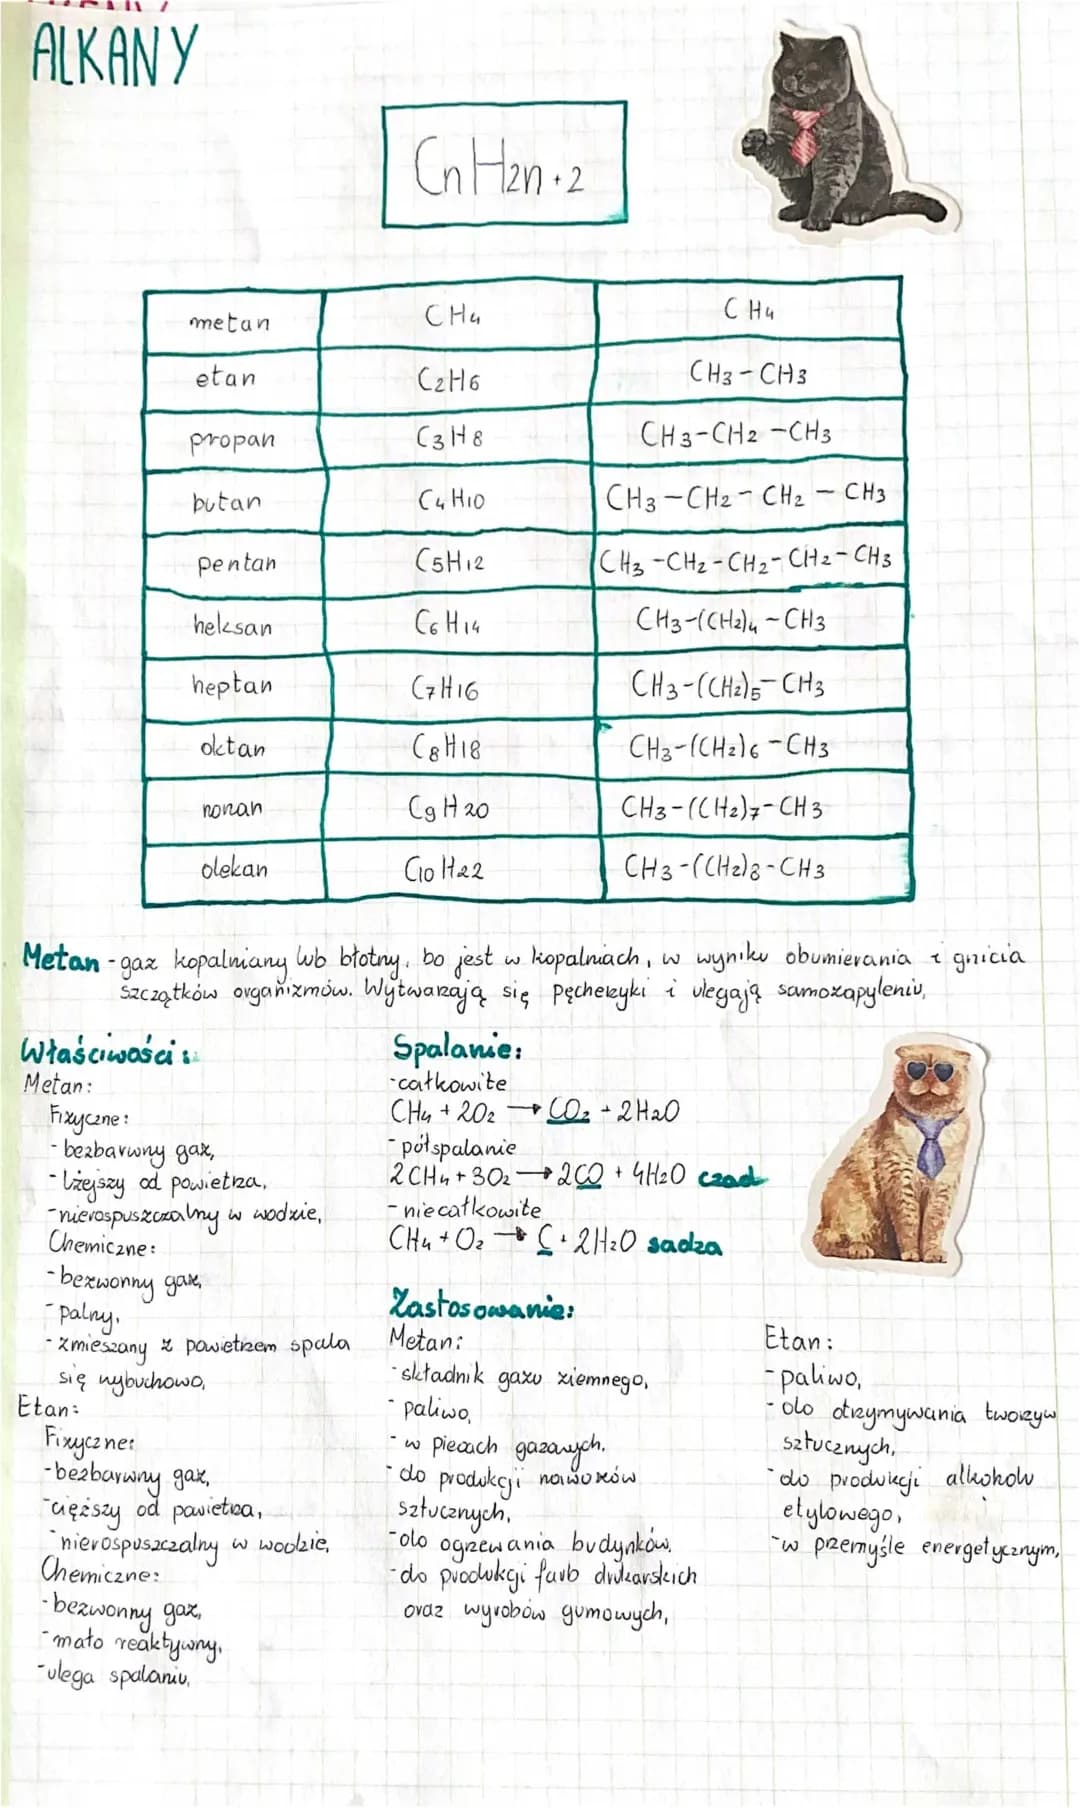 ALKANY
CnH2n+2
metan CH4 CH4
etan C2H6 CH3-CH3
propan C3H8 CH3-CH2-CH3
butan C4H10 CH3-CH2-CH2-CH3
pentan C5H12 CH3-CH2-CH2-CH2-CH3
heksan C6H14 CH3-(CH2)4-CH3
heptan C7H16 CH3-(CH2)5-CH3
oktan C8H18 CH3-(CH2)6-CH3
nonan C9H20 CH3-(CH2)7-CH3
dekan C10H22 CH3-(CH2)8-CH3
Metan - gaz kopalniany lub błotny, bo jest w kopalniach, w wyniku obumierania i gnicia
szczątków organizmów. Wytwarzają się pęcherzyki i ulegają samozapyleniu,
Właściwości:
Metan:
Fizyczne:
- bezbarwny gaz,
- lżejszy od powietrza,
- nierozpuszczalny w wodzie,
Chemiczne:
- bezwonny gaz,
- palny,
- zmieszany z powietrzem spala
się wybuchowo,
Etan:
Fizyczne:
- bezbarwny gaz,
- cięższy od powietrza,
- nierospuszczalny w wodzie,
Chemiczne:
- bezwonny gaz,
- mało reaktywny,
- ulega spalaniu,
Spalanie:
- całkowite
CH4 + 2O2 → CO2 + 2H2O
- półspalanie
2CH4 + 3O2 → 2CO + 4H2O czad
- niecałkowite
CH4 + O2 → C + 2H2O sadza
Zastosowanie:
Metan:
- składnik gazu ziemnego,
- paliwo,
- w piecach gazowych,
- do produkcji nawozów
sztucznych,
- do ogrzewania budynków,
- do produkcji farb drukarskich
oraz wyrobów gumowych,
Etan:
- paliwo,
- do otrzymywania tworzyw
sztucznych,
- do produkcji alkoholu
etylowego,
- w przemyśle energetycznym,